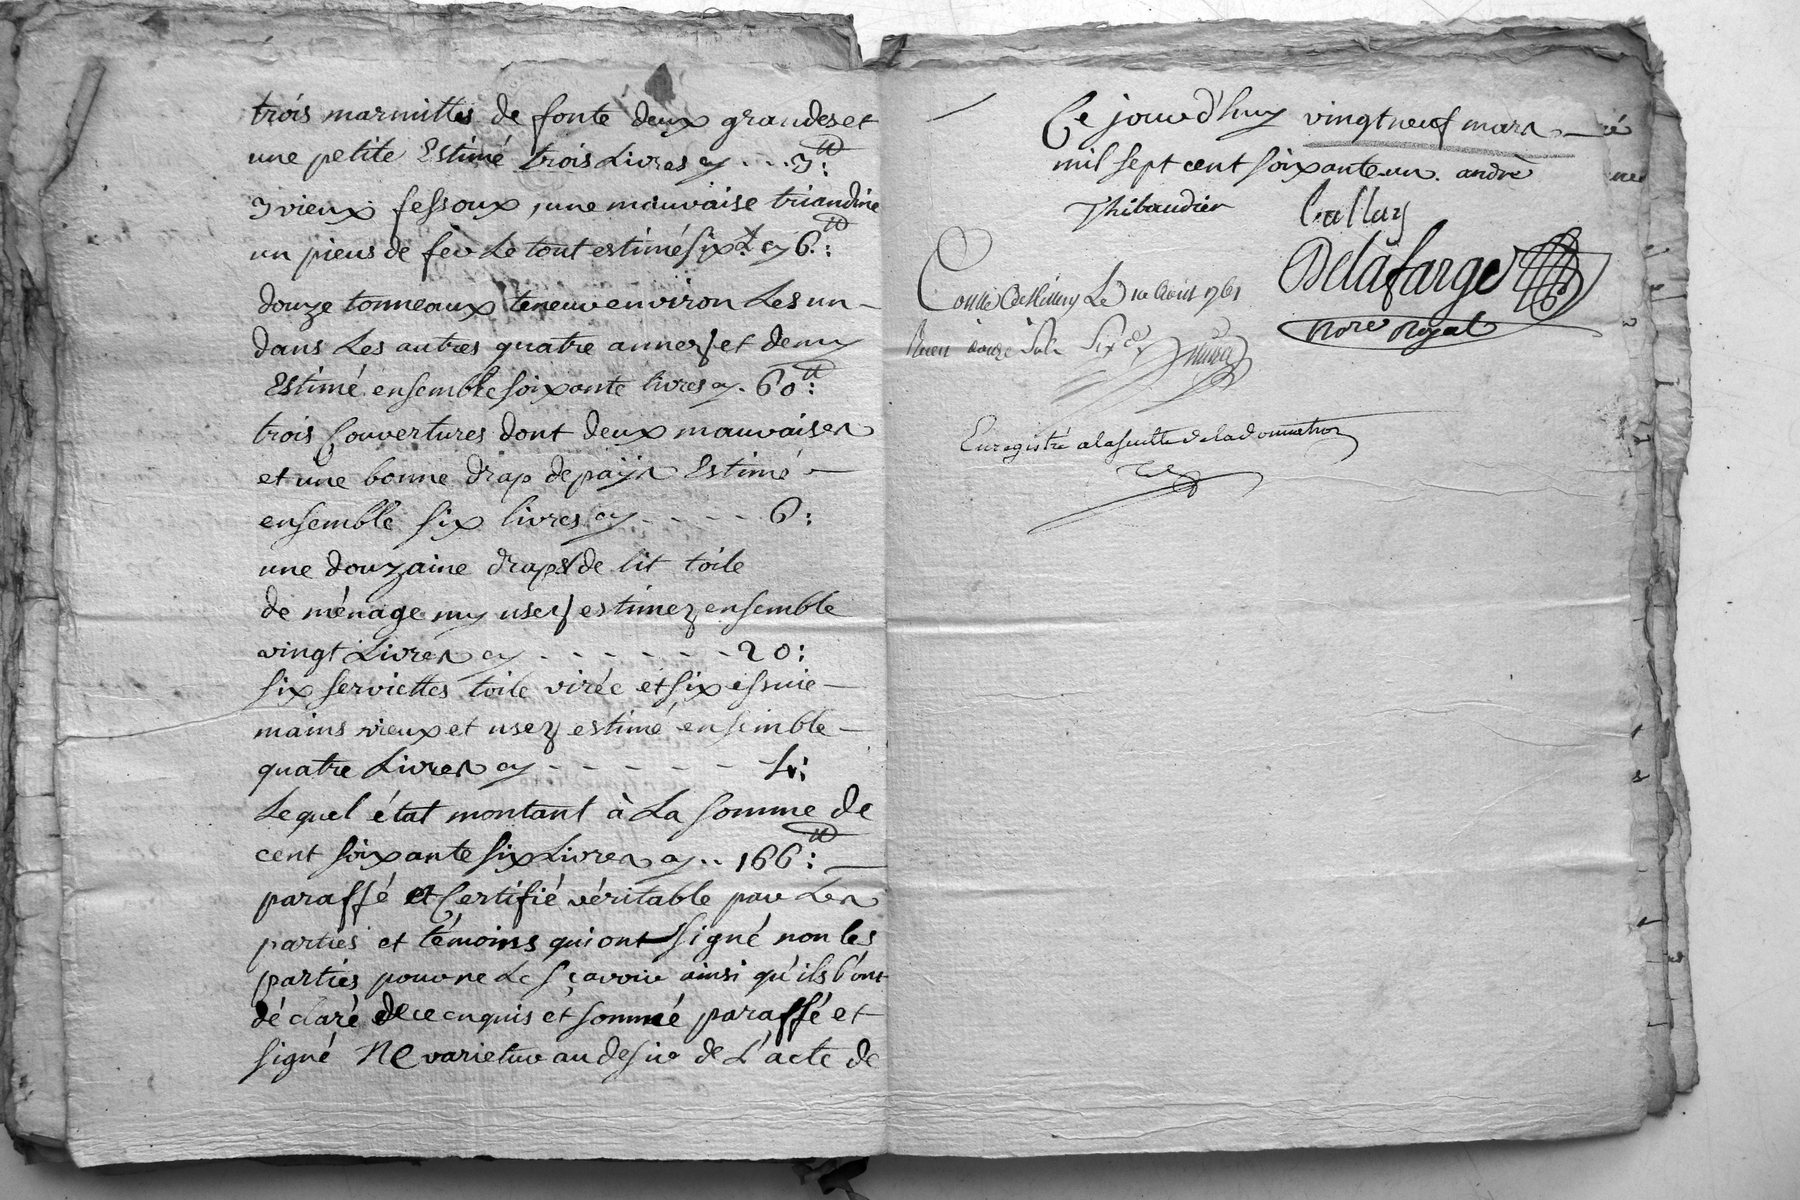 trois marmittes de fonte deux grandes et
une petite Estimé trois Livres cy - - . 3:
3 vieux fessoux, une mauvaise triandine
un pieus de fer Le tout estimé six L. cy 6:
douze tonneaux teneur environ Les un
dans Les autres quatre annez et demy
Estimé ensemble soixante livres cy . 60:
trois Couvertures dont deux mauvaises
et une bonne drap de païs Estimé
ensemble six livres cy - - - - 6:
une douzaine draps de lit toile
de ménage my usez estimez ensemble
vingt Livres cy - - - - - - - 20:
six serviettes toile virée et six essuie
mains vieux et usez estimé ensemble
quatre Livres cy - - - - - - 4:
Lequel état montant à La somme de
cent soixante six Livres cy .. 166:
paraffé et Certifié véritable par Les
parties et témoins qui ont signé non les
parties pour ne Le sçavoir ainsi qu'ils l'ont
déclaré de ce enquis et sommé paraffé et
signé Ne varietur au desir de L'acte de
Ce jourd'huy vingt neuf mars
mil sept cent soixante un. andré
Thibaudier Callas
Delafarge
Nore Royal
Le 10 Août 1761
Reçu douze sols six
Enregistré a la suitte de la donnation